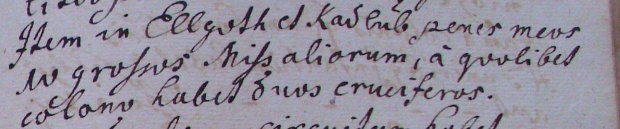 Item in Ellgoth et Kadlub penes meos
IV grossos Missaliorum, à quolibet
colono habet duos cruciferos.
circuitum habet